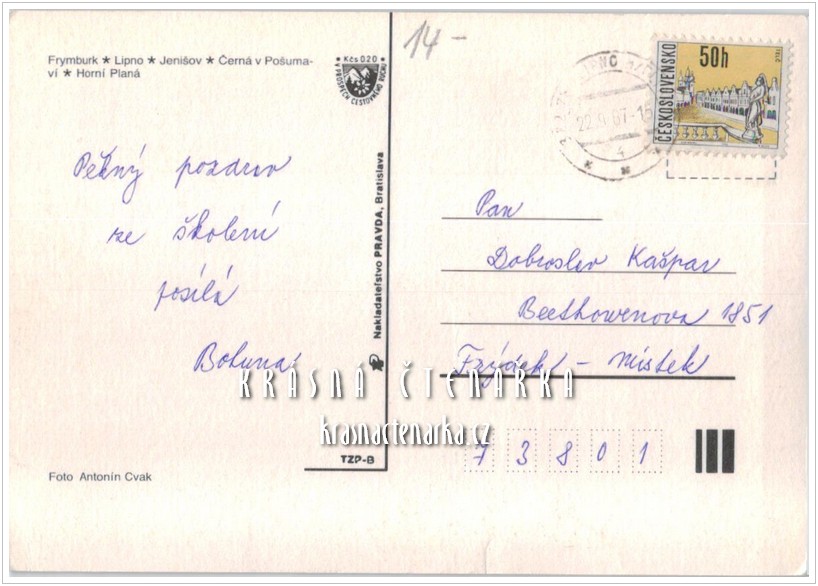 Frymburk ✶ Lipno ✶ Jenišov ✶ Černá v Pošuma-
ví ✶ Horní Planá
Kčs 0.20
V PROSPĚCH CESTOVNÉHO RUCHU
14-
22.9.87-15
4
ČESKOSLOVENSKO
50h
Pěkný pozdrav
ze školení
posílá
Bohuna
Nakladateľstvo PRAVDA, Bratislava
Pan
Dobroslav Kašpar
Beethowenova 1851
Frýdek - Místek
73801
KRÁSNÁ ČTENÁŘKA
krasnactenarka.cz
TZP-B
Foto Antonín Cvak